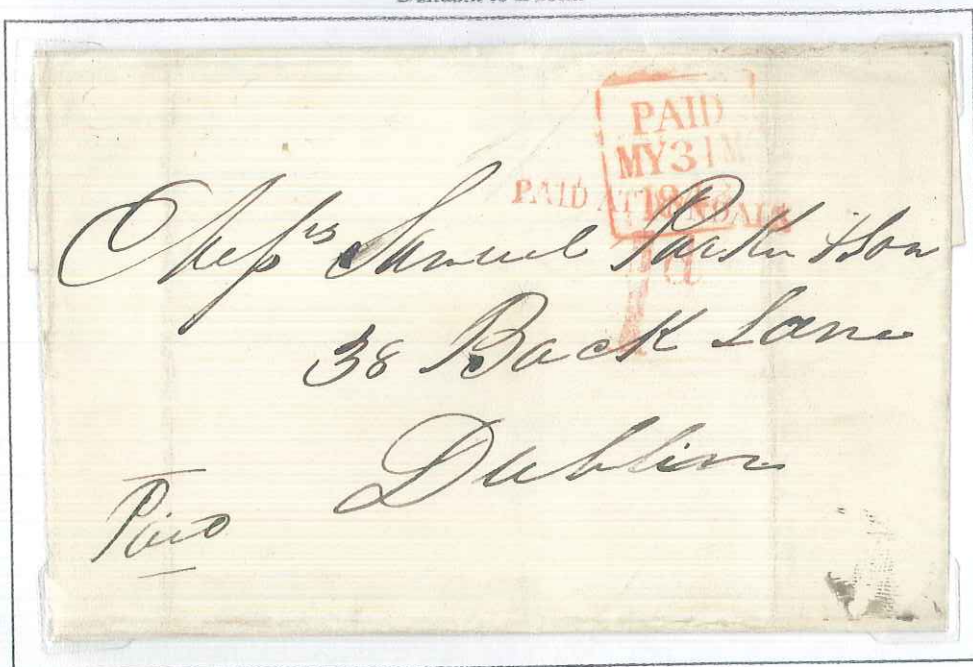 PAID
MY31M
PAID AT DUNDALK
1d
Messrs Samuel Parker & Son
38 Back Lane
Dublin
Paid